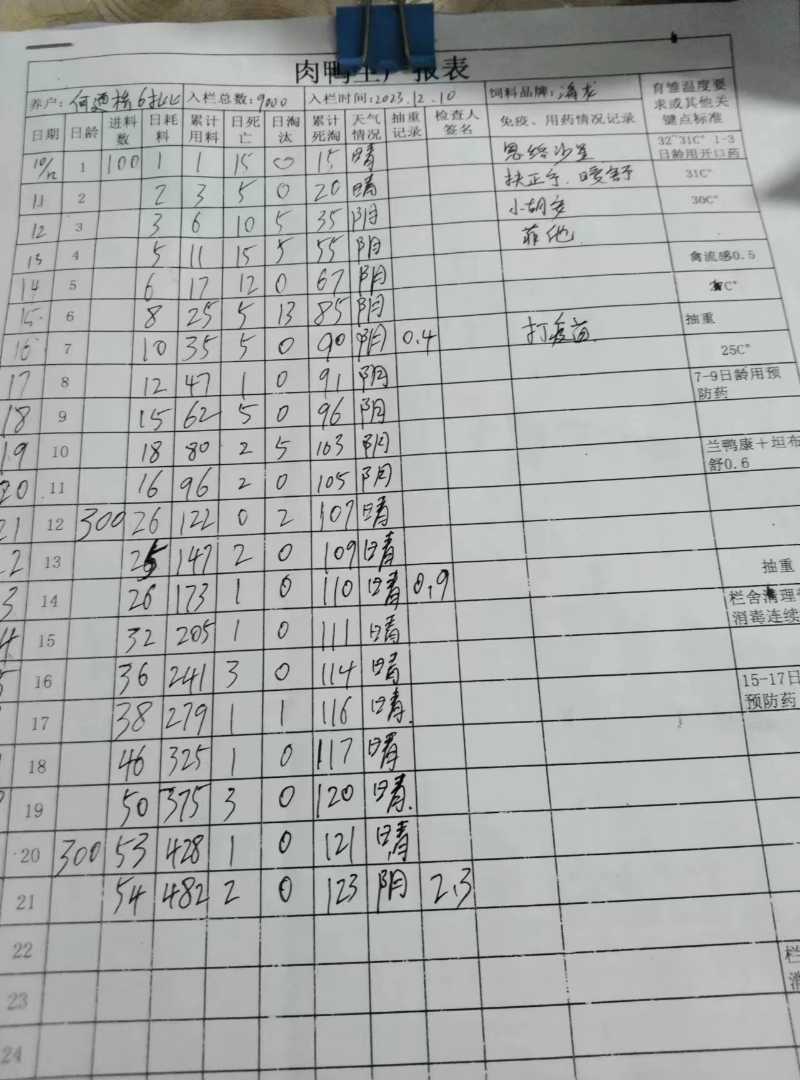 肉鸭生产报表
养户: 何 栋 6批 入栏总数:9000 入栏时间:2023.12.10 饲料品牌: 海龙 育雏温度要求或其他关键点标准
日期 日龄 进料数 日耗料 累计用料 日死亡 日淘汰 累计死淘 天气情况 抽重记录 检查人签名 免疫、用药情况记录
10/12 1 100 1 1 15 0 15 晴 恩络沙星 32~31C° 1-3日龄用开口药
11 2 2 3 5 0 20 晴 扶正 31C°
12 3 3 6 10 5 35 阴 小胡 30C°
13 4 5 11 15 5 55 阴 菲他
14 5 6 17 12 0 67 阴 禽流感0.5
15 6 8 25 5 13 85 阴 C°
16 7 10 35 5 0 90 阴 0.4 打疫苗 抽重
17 8 12 47 1 0 91 阴 25C°
18 9 15 62 5 0 96 阴 7-9日龄用预防药
19 10 18 80 2 5 103 阴
20 11 16 96 2 0 105 阴 兰鸭康+坦布舒0.6
21 12 300 26 122 0 2 107 晴
2 13 25 147 2 0 109 晴
3 14 26 173 1 0 110 晴 0.9 抽重
4 15 32 205 1 0 111 晴 栏舍清理 消毒连续
5 16 36 241 3 0 114 晴
17 38 279 1 1 116 晴 15-17日 预防药
18 46 325 1 0 117 晴
19 50 375 3 0 120 晴
20 300 53 428 1 0 121 晴
21 54 482 2 0 123 阴 2.3
22
23 栏
24